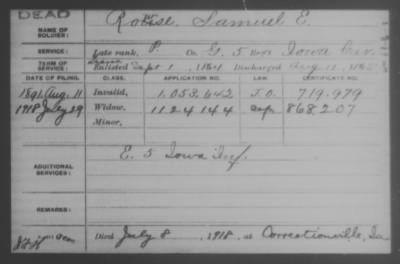 DEAD
NAME OF SOLDIER: Samuel E.
SERVICE: Late rank, P. Co. G, 5 Reg't Iowa Cav.
TERM OF SERVICE: Enlisted Sept 1, 1864 Discharged Aug 11, 1865
DATE OF FILING. CLASS. APPLICATION NO. LAW. CERTIFICATE NO.
1891 Aug. 11 Invalid, 1.053.642 719.979
1918 July 29 Widow, 1124144 868.207
Minor,
ADDITIONAL SERVICES: E. 5 Iowa Inf.
REMARKS:
Died July 8, 1918, at Correctionville, Ia